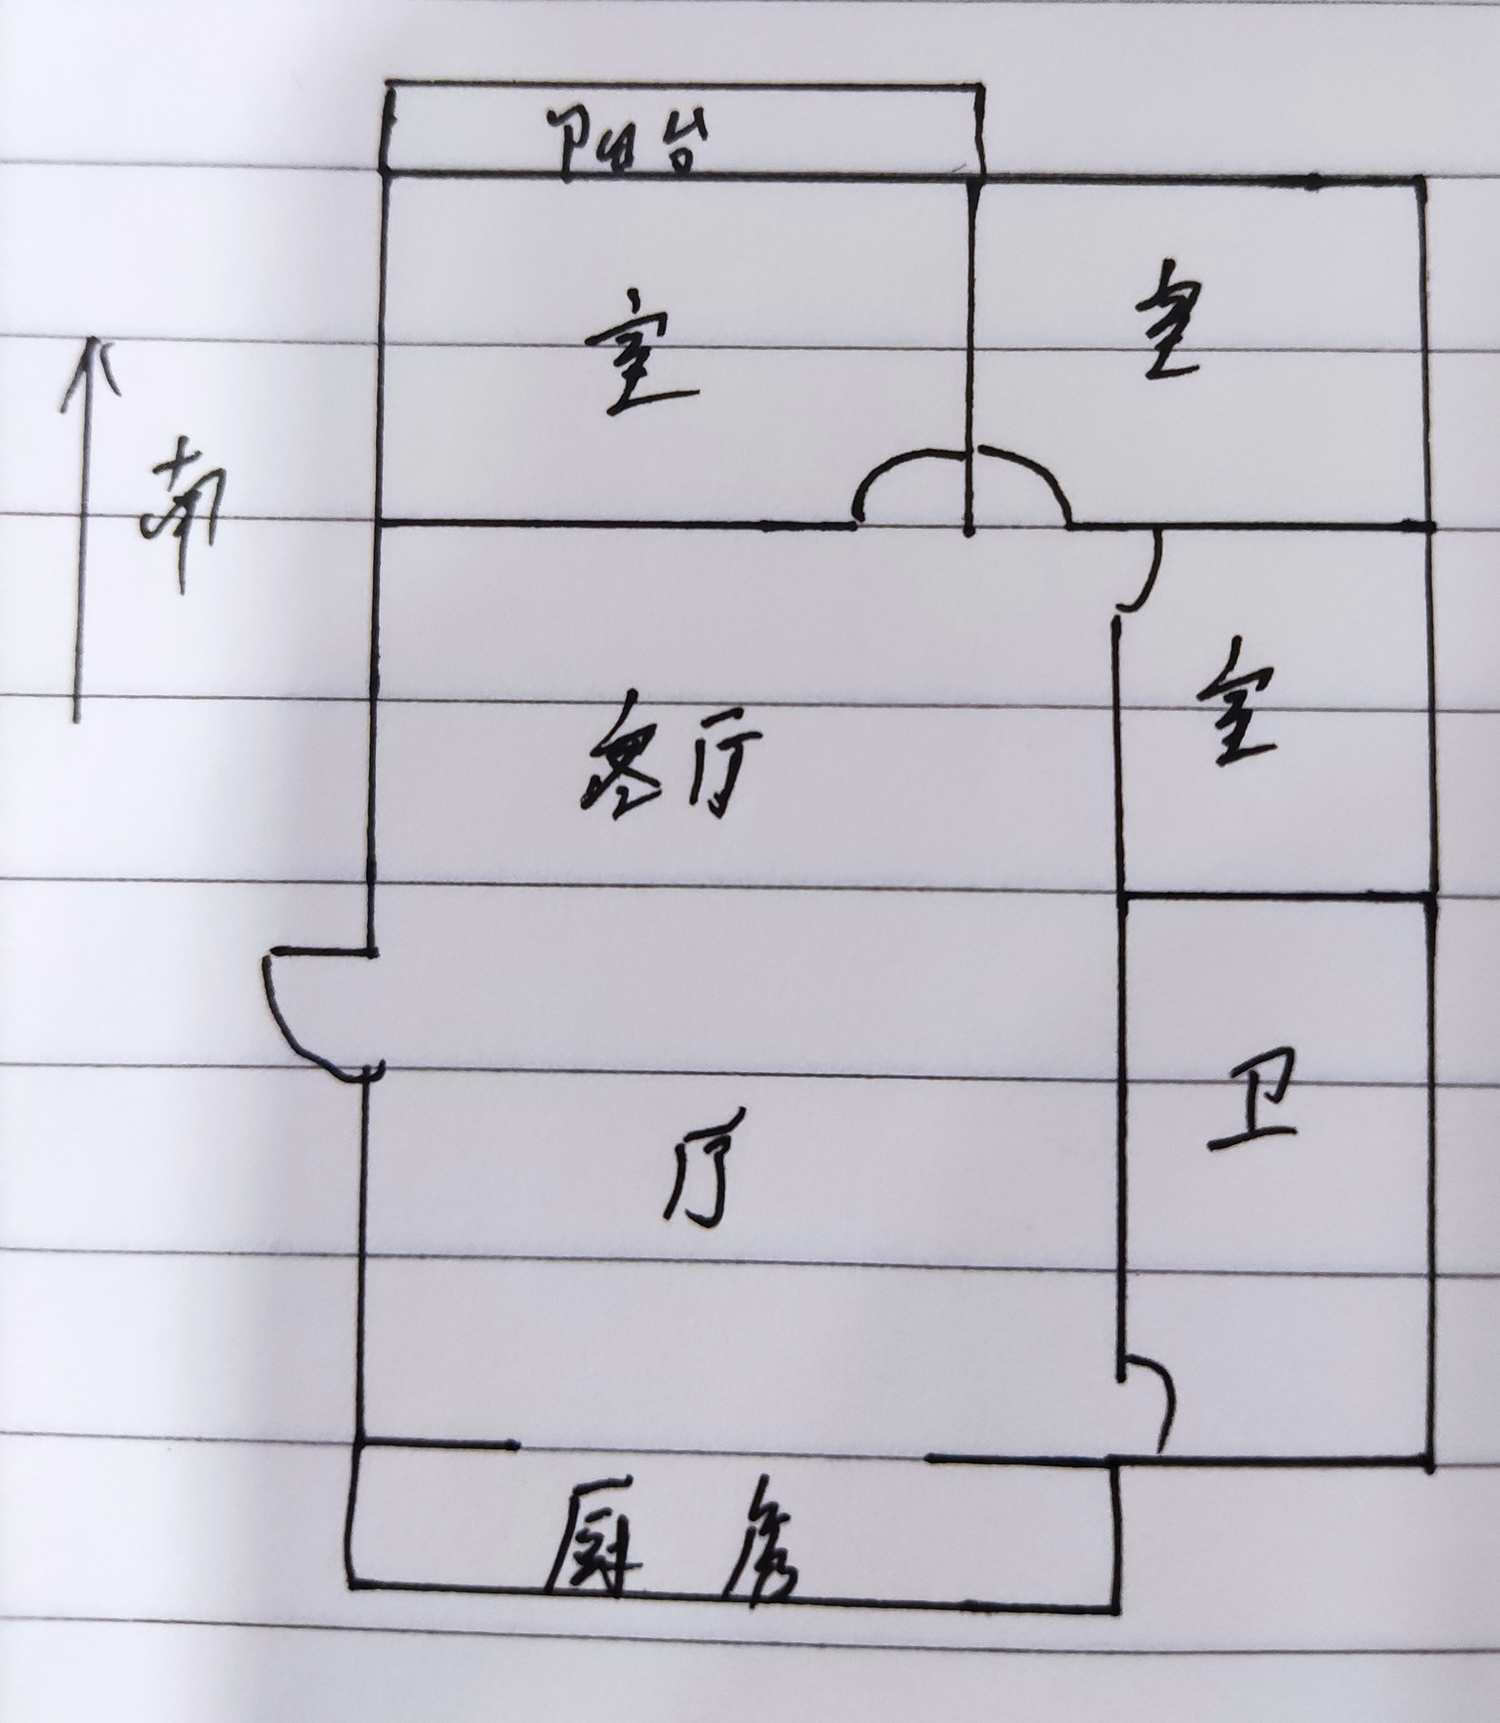 阳台
室
室
南
室
客厅
卫
厅
厨房